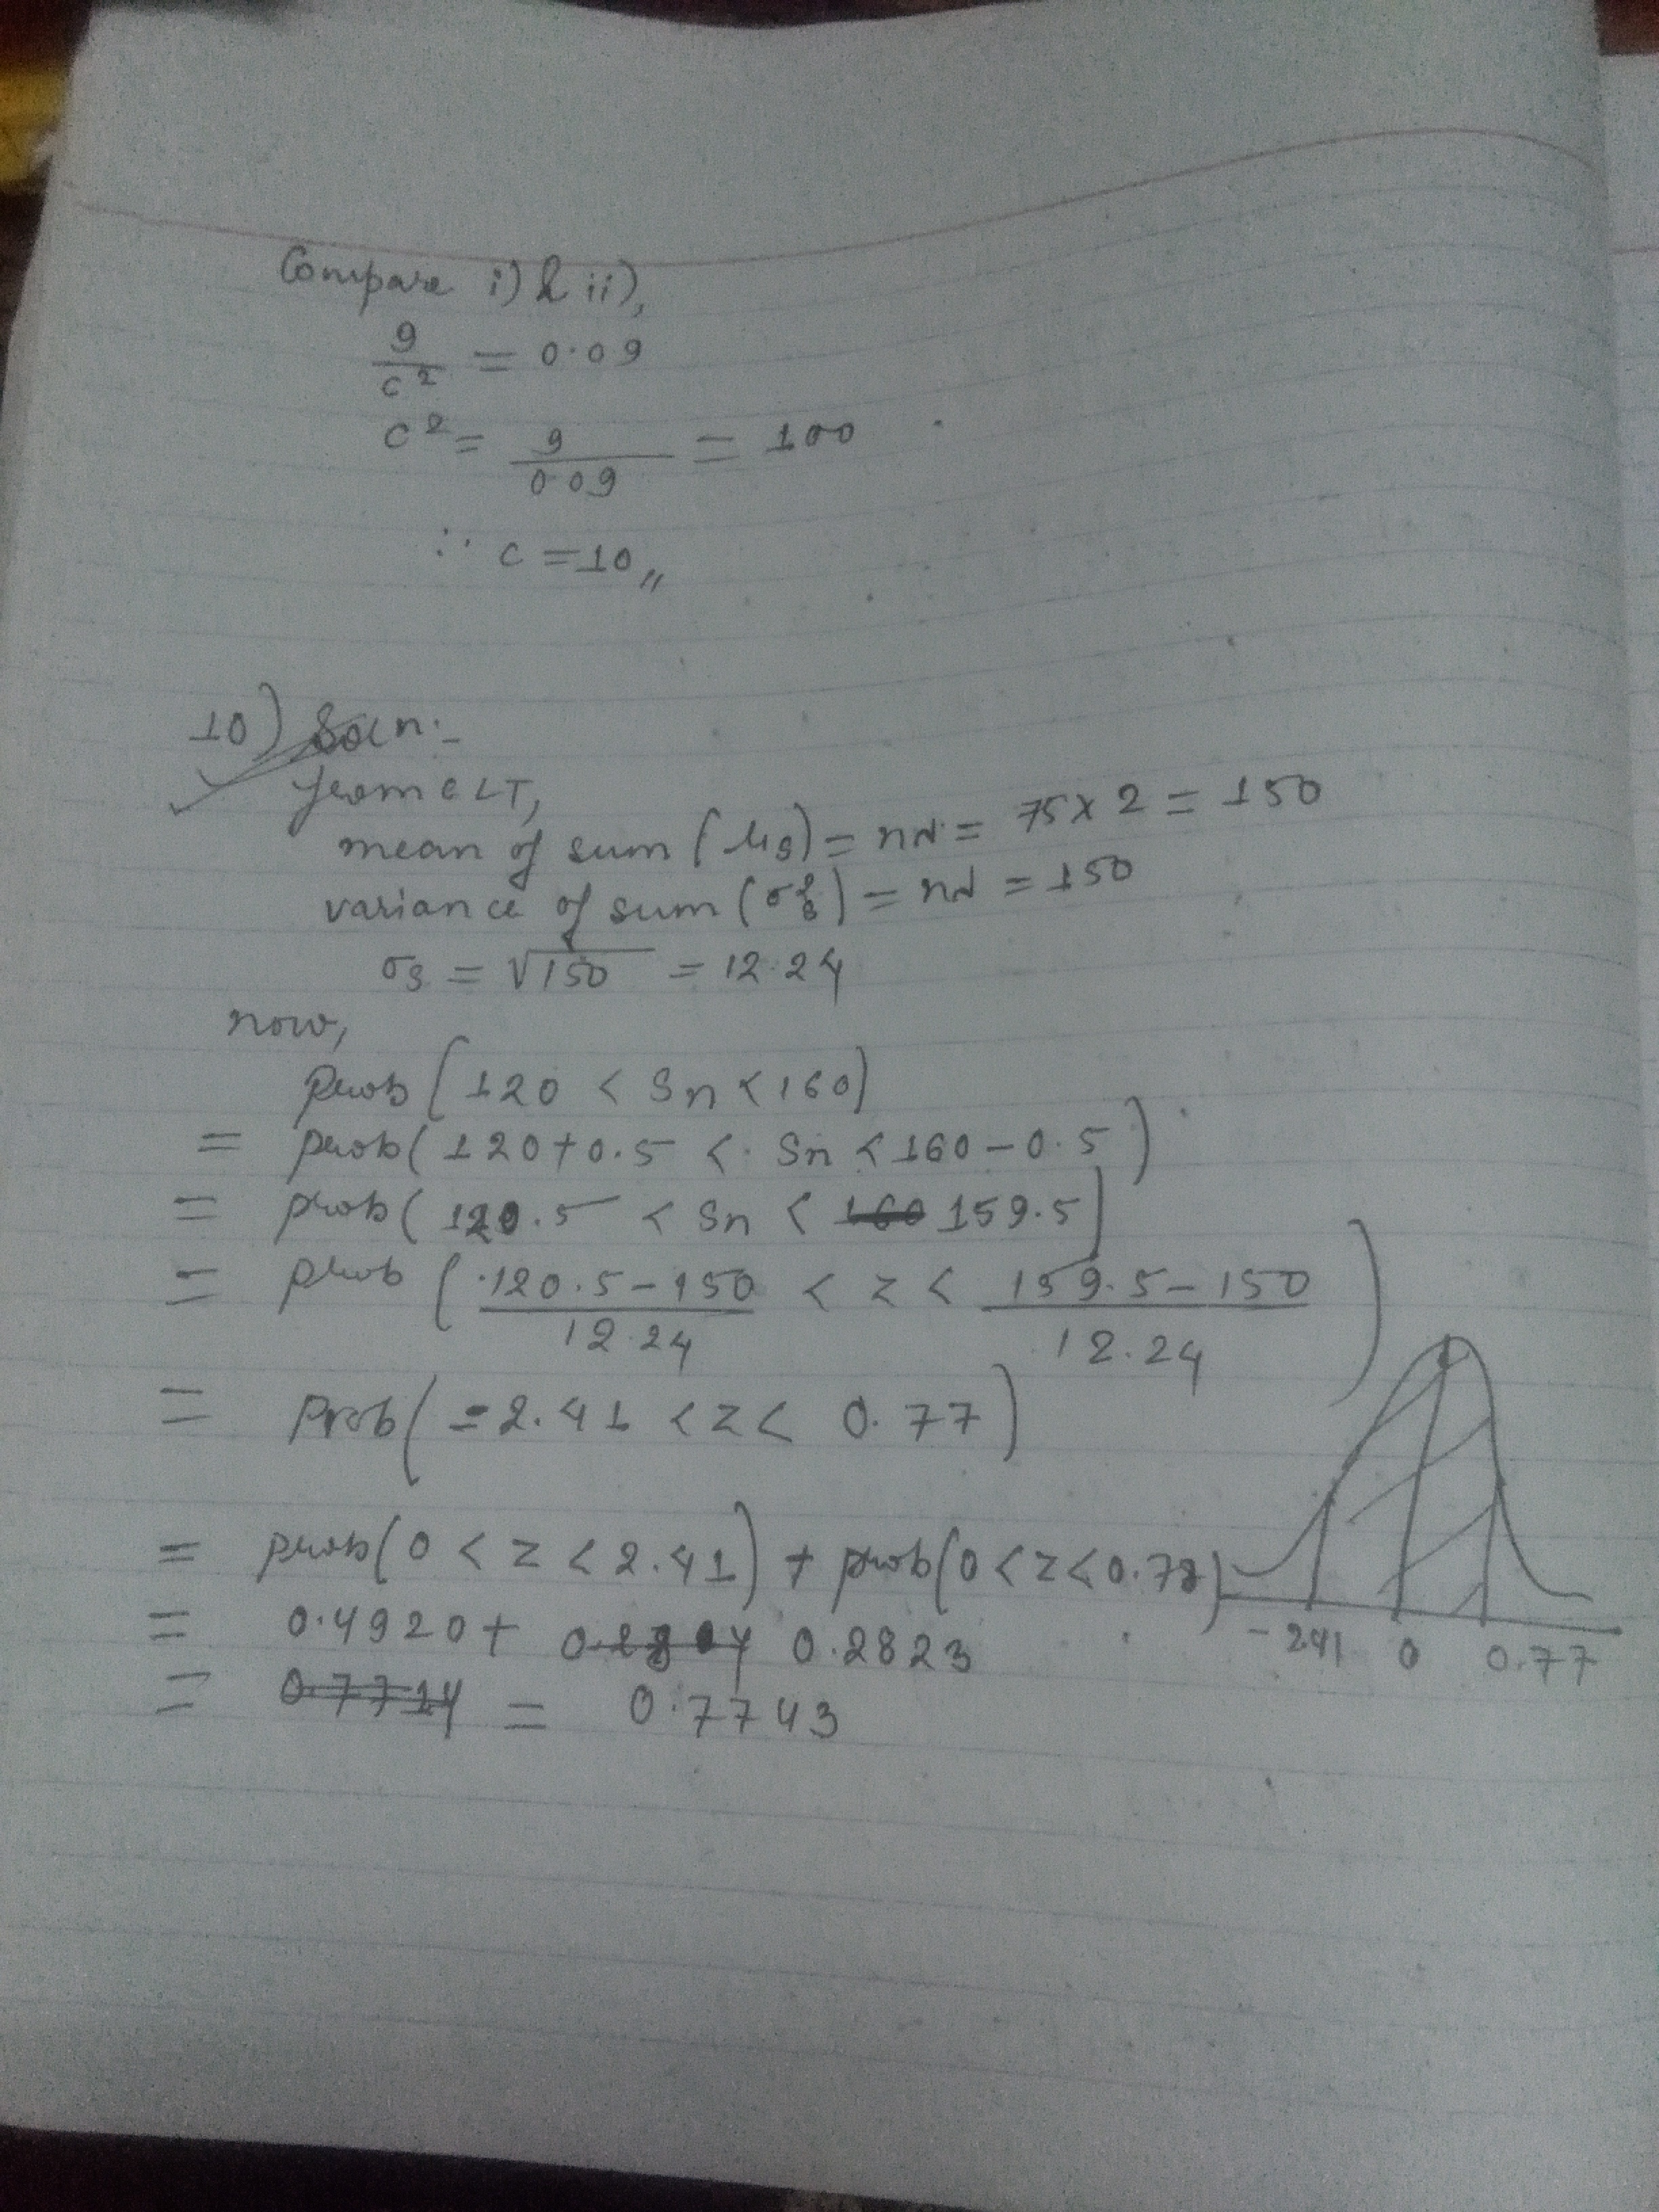 Compare i) & ii),
9/c² = 0.09
c² = 9/0.09 = 100
∴ c = 10,,
10) Soln:-
from CLT,
mean of sum (μs) = nλ = 75 x 2 = 150
variance of sum (σ²s) = nλ = 150
σs = √150 = 12.24
now,
prob (120 < Sn < 160)
= prob (120 + 0.5 < Sn < 160 - 0.5)
= prob (120.5 < Sn < 160 159.5)
= prob (120.5 - 150/12.24 < z < 159.5 - 150/12.24)
= Prob (-2.41 < z < 0.77)
= prob (0 < z < 2.41) + prob (0 < z < 0.78)
= 0.4920 + 0.2823
= 0.7714 = 0.7743
-241 0 0.77